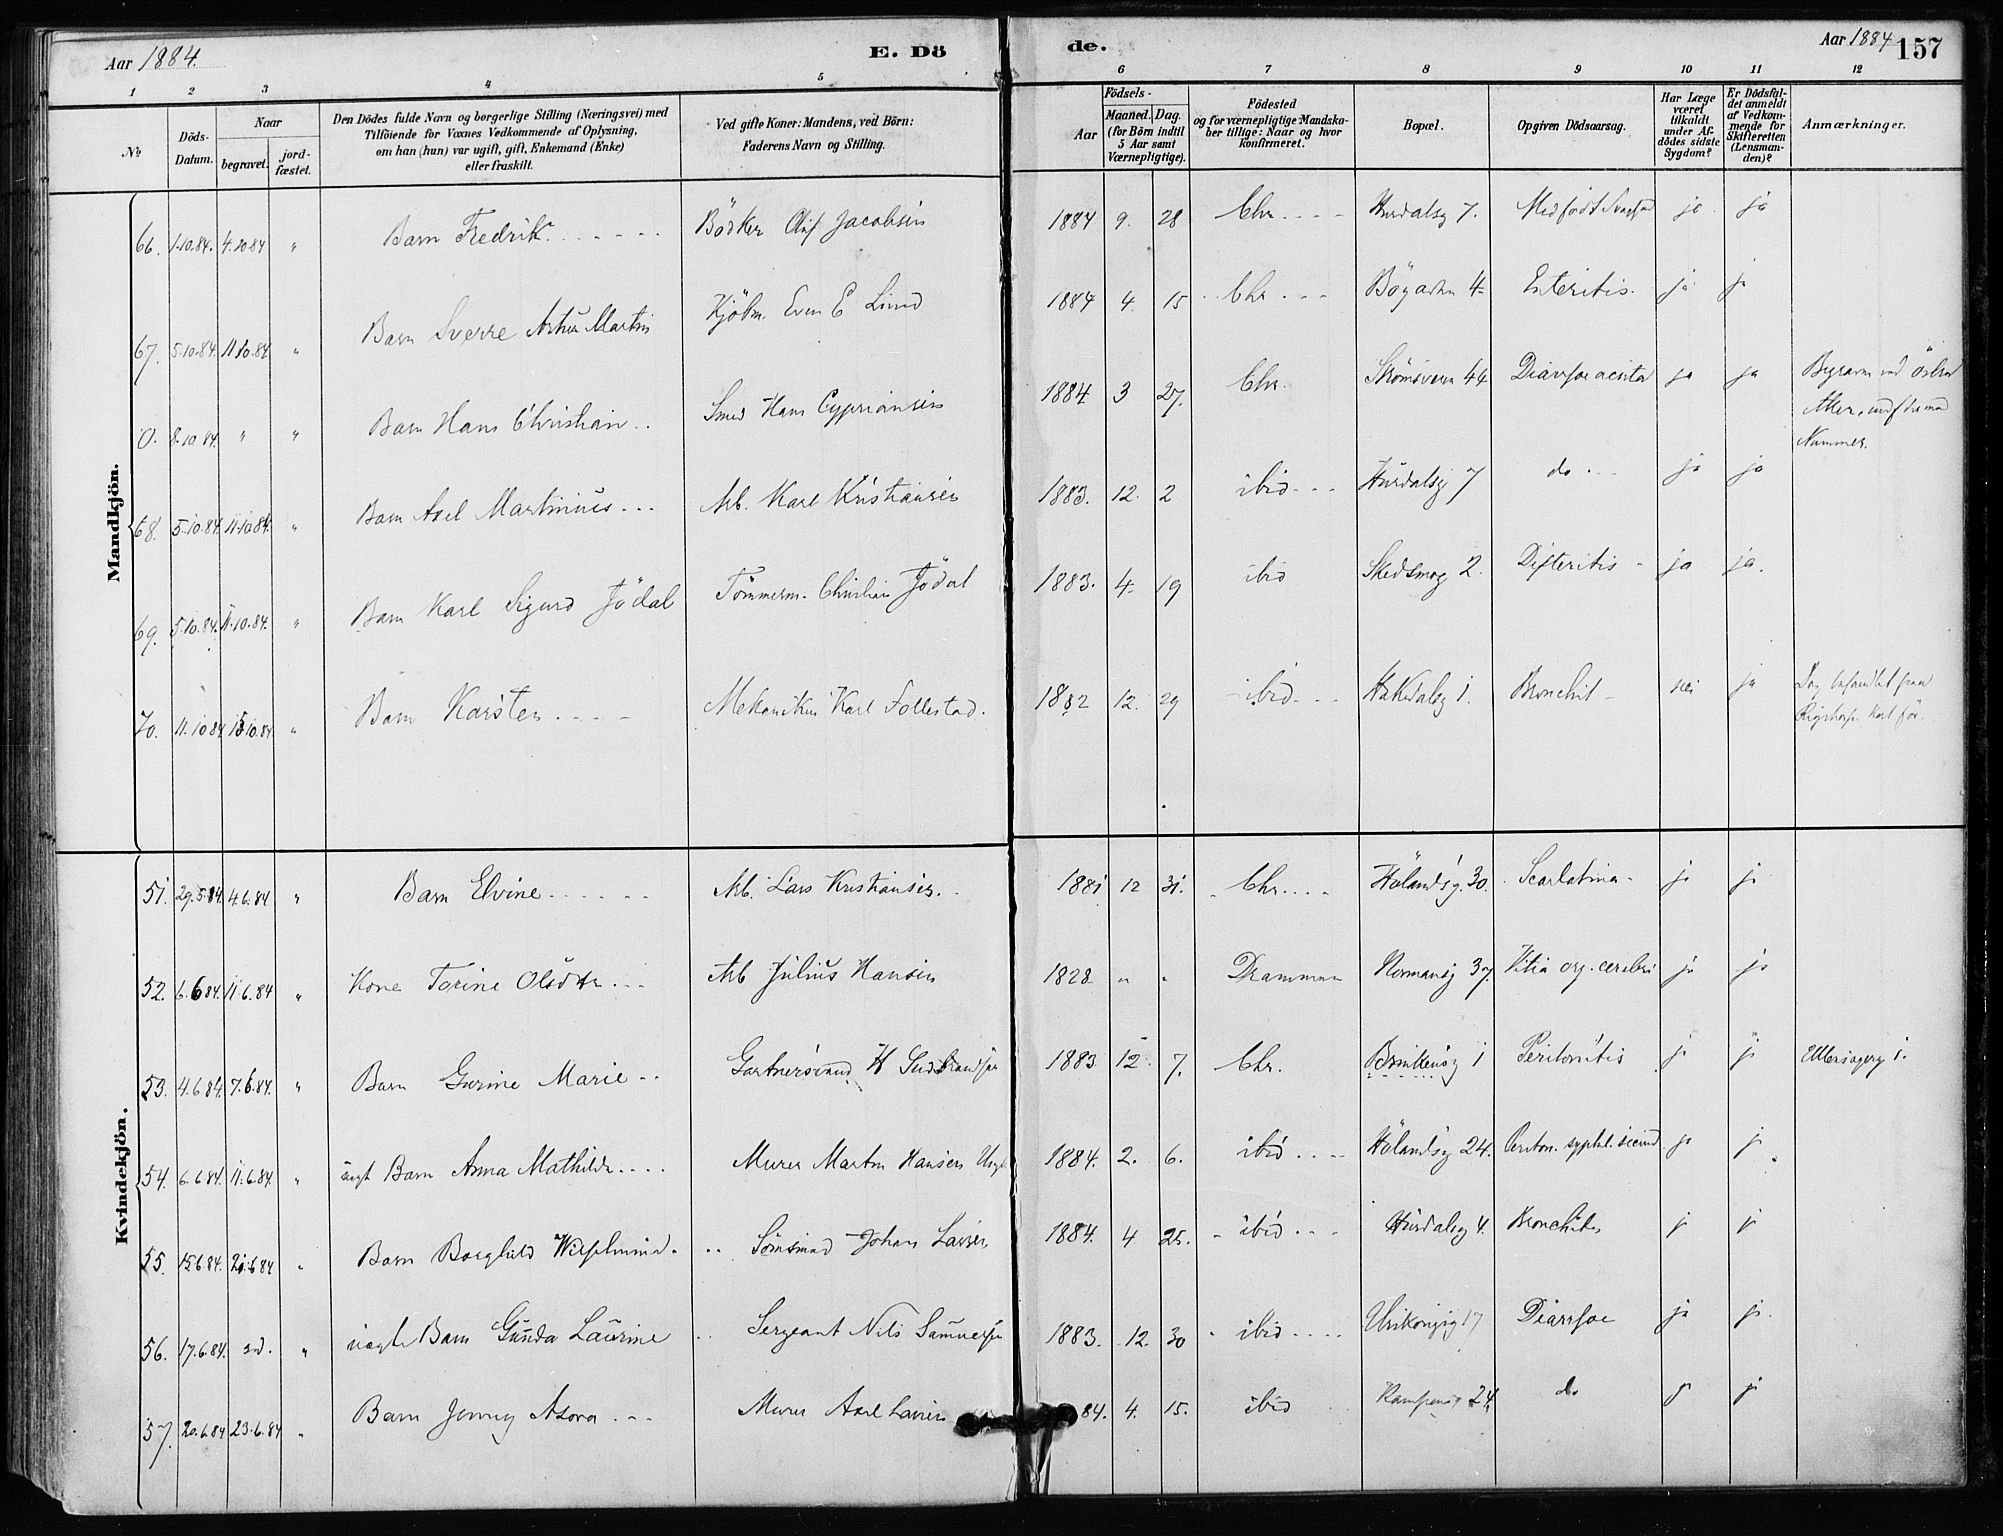 Aar 1884. E. Dö de. Aar 1884 157
1 2 3 4 5 6 7 8 9 10 11 12
No Döds-Datum. Naar begravet. jord-fæstet. Den Dödes fulde Navn og borgerlige Stilling (Næringsvei) med Tilföiende for Voxnes Vedkommende af Oplysning, om han (hun) var ugift, gift, Enkemand (Enke) eller fraskilt. Ved gifte Koner: Mandens, ved Börn: Faderens Navn og Stilling. Aar Födsels- Maaned. Dag. (for Börn indtil 5 Aar samt Værnepligtige). Födested og for værnepligtige Mandska-ber tillige: Naar og hvor konfirmeret. Bopæl. Opgiven Dödsaarsag. Har Læge været tilkaldt under Af-dödes sidste Sygdom? Er Dödsfal-det anmeldt af Vedkom-mende for Skifteretten (Lensman-den)? Anmærkninger.
Mandkjön.
66. 1.10.84. 4.10.84 " Barn Fredrik Bödker Olaf Jacobsen 1884 9. 28 Chr. Hurdalsg 7. Medfödt ja ja
67. 5.10.84. 11.10.84 " Barn Sverre Artur Martin Kjöbm. Even E Lund 1884 4. 15 Chr. 4 Enteritis. ja ja
0. 8.10.84. " " Barn Hans Christian Smed Hans Cypriansen 1884 3 27. Chr. Strömsveien 44 Diarrhoe acuta ja ja Begraven ved Östre Aker, uden Nummer.
68. 5.10.84. 11.10.84. " Barn Axel Martinius Arb. Karl Kristiansen 1883. 12. 2 ibid Hurdalsg 7 do ja ja
69. 5.10.84. 11.10.84. " Barn Karl Sigurd Jödal Tömmerm. Christian Jödal 1883. 4 19 ibid Skedsmog 2. Difteritis ja ja.
70. 11.10.84 15.10.84. " Barn Karsten Mekanikus Karl Follestad. 1882 12. 29 ibid Hakedalsg 1. Bronchit nei ja Dog behandlet paa Rigshosp. kort för.
Kvindekjön.
51. 29.5.84. 4.6.84 " Barn Elvine Arb. Lars Kristiansen 1881 12 31. Chr. Hölandsg. 30. Scarlatina ja ja
52. 6.6.84. 11.6.84 " Kone Torine Olsdtr Arb Julius Hansen 1828 " " Drammen Normansg 37. Vitia org. cerebri ja ja
53. 4.6.84. 7.6.84. " Barn Gurine Marie Gartnersvend H Gudbrandsen 1883 12. 7. Chr. 1 Peritonitis ja ja 1.
54. 6.6.84. 11.6.84. " uegt Barn Anna Mathilde Murer Martin Hansen 1884. 2. 6. ibid Hölandsg 24. ja ja
55. 15.6.84. 21.6.84 " Barn Borghild Wilhelmine Johan Larsen 1884. 4 25. ibid Hurdalsg 4. Bronchitis ja ja
56. 17.6.84. " uegte Barn Gunda Laurine Sergeant Nils Samuelsen 1883. 12. 30 ibid 17 Diarrhoe ja ja
57. 20.6.84 23.6.84 " Barn Jenny Asora Murer Axel Larsen 84. 4. 15. ibid Kampensg 24. do ja ja